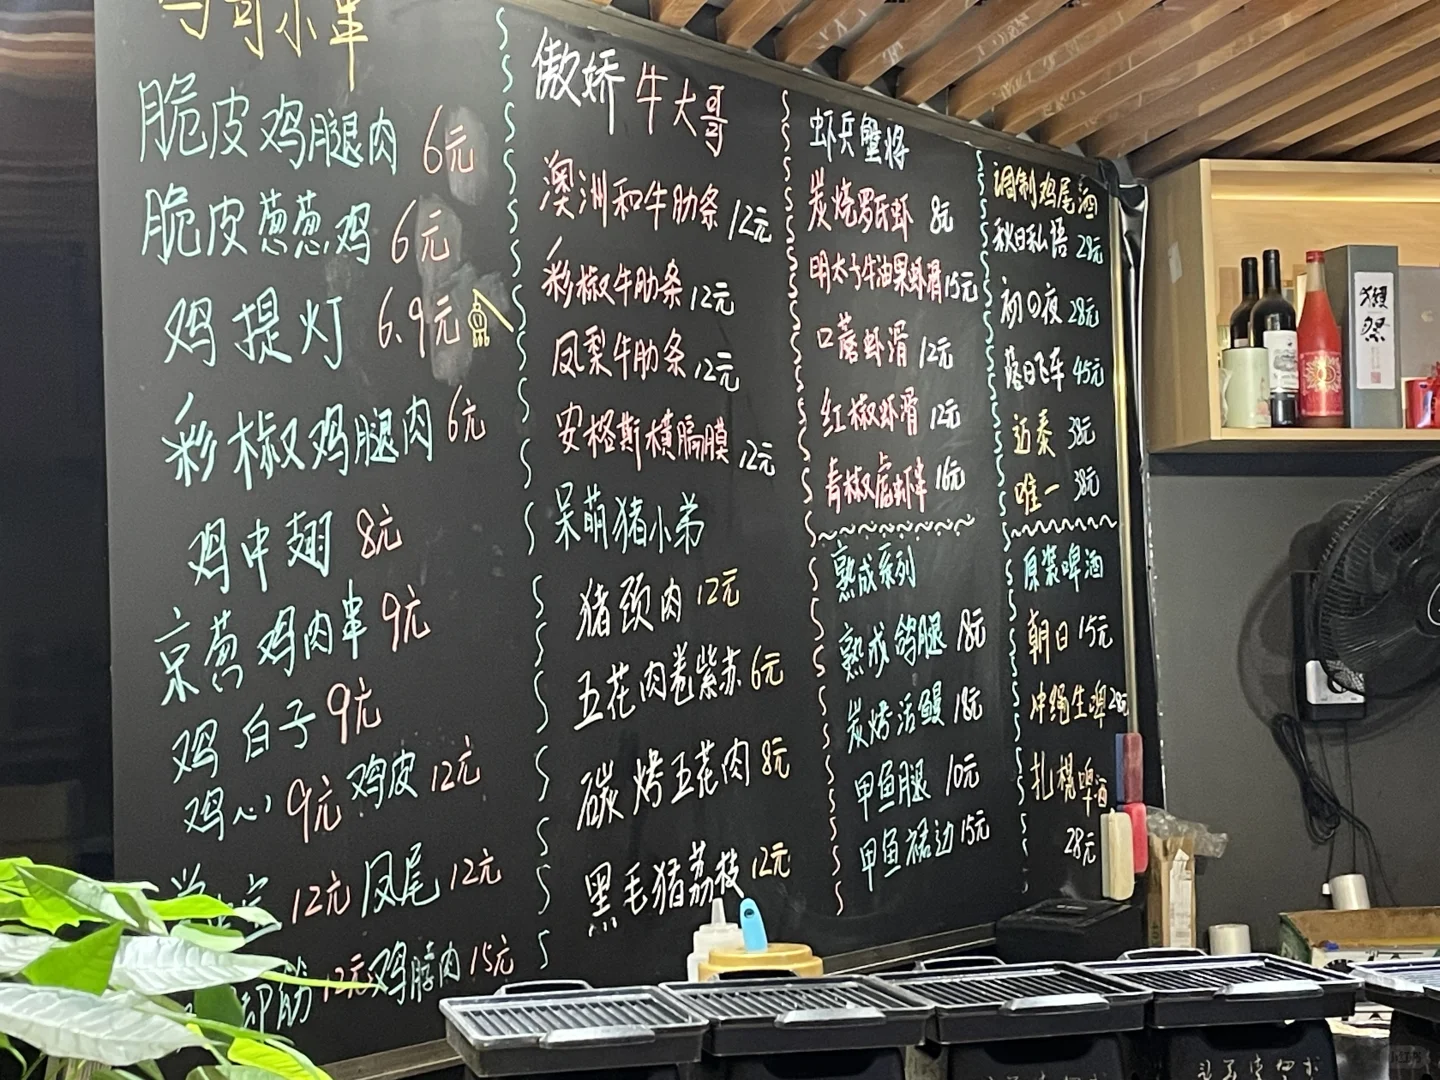 小串
脆皮鸡腿肉 6元
脆皮葱葱鸡 6元
鸡提灯 6.9元
彩椒鸡腿肉 6元
鸡中翅 8元
京葱鸡肉串 9元
鸡白子 9元
鸡心 9元 鸡皮 12元
12元 凤尾 12元
筋 12元 鸡脖肉 15元
傲娇牛大哥
澳洲和牛肋条 12元
彩椒牛肋条 12元
凤梨牛肋条 12元
安格斯横膈膜 12元
呆萌猪小弟
猪颈肉 12元
五花肉卷紫苏 6元
碳烤五花肉 8元
黑毛猪荔枝 12元
虾兵蟹将
炭烧罗氏虾 8元
明太子牛油果虾滑 15元
口蘑虾滑 12元
红椒虾滑 12元
青椒虎虾串 16元
熟成系列
熟成鸽腿 18元
炭烤活鳗 18元
甲鱼腿 10元
甲鱼裙边 15元
调制鸡尾酒
秋日私语 28元
初の夜 28元
落日飞车 45元
迈泰 38元
唯一 38元
原浆啤酒
朝日 15元
冲绳生啤 28元
扎槐啤酒
28元
獭祭